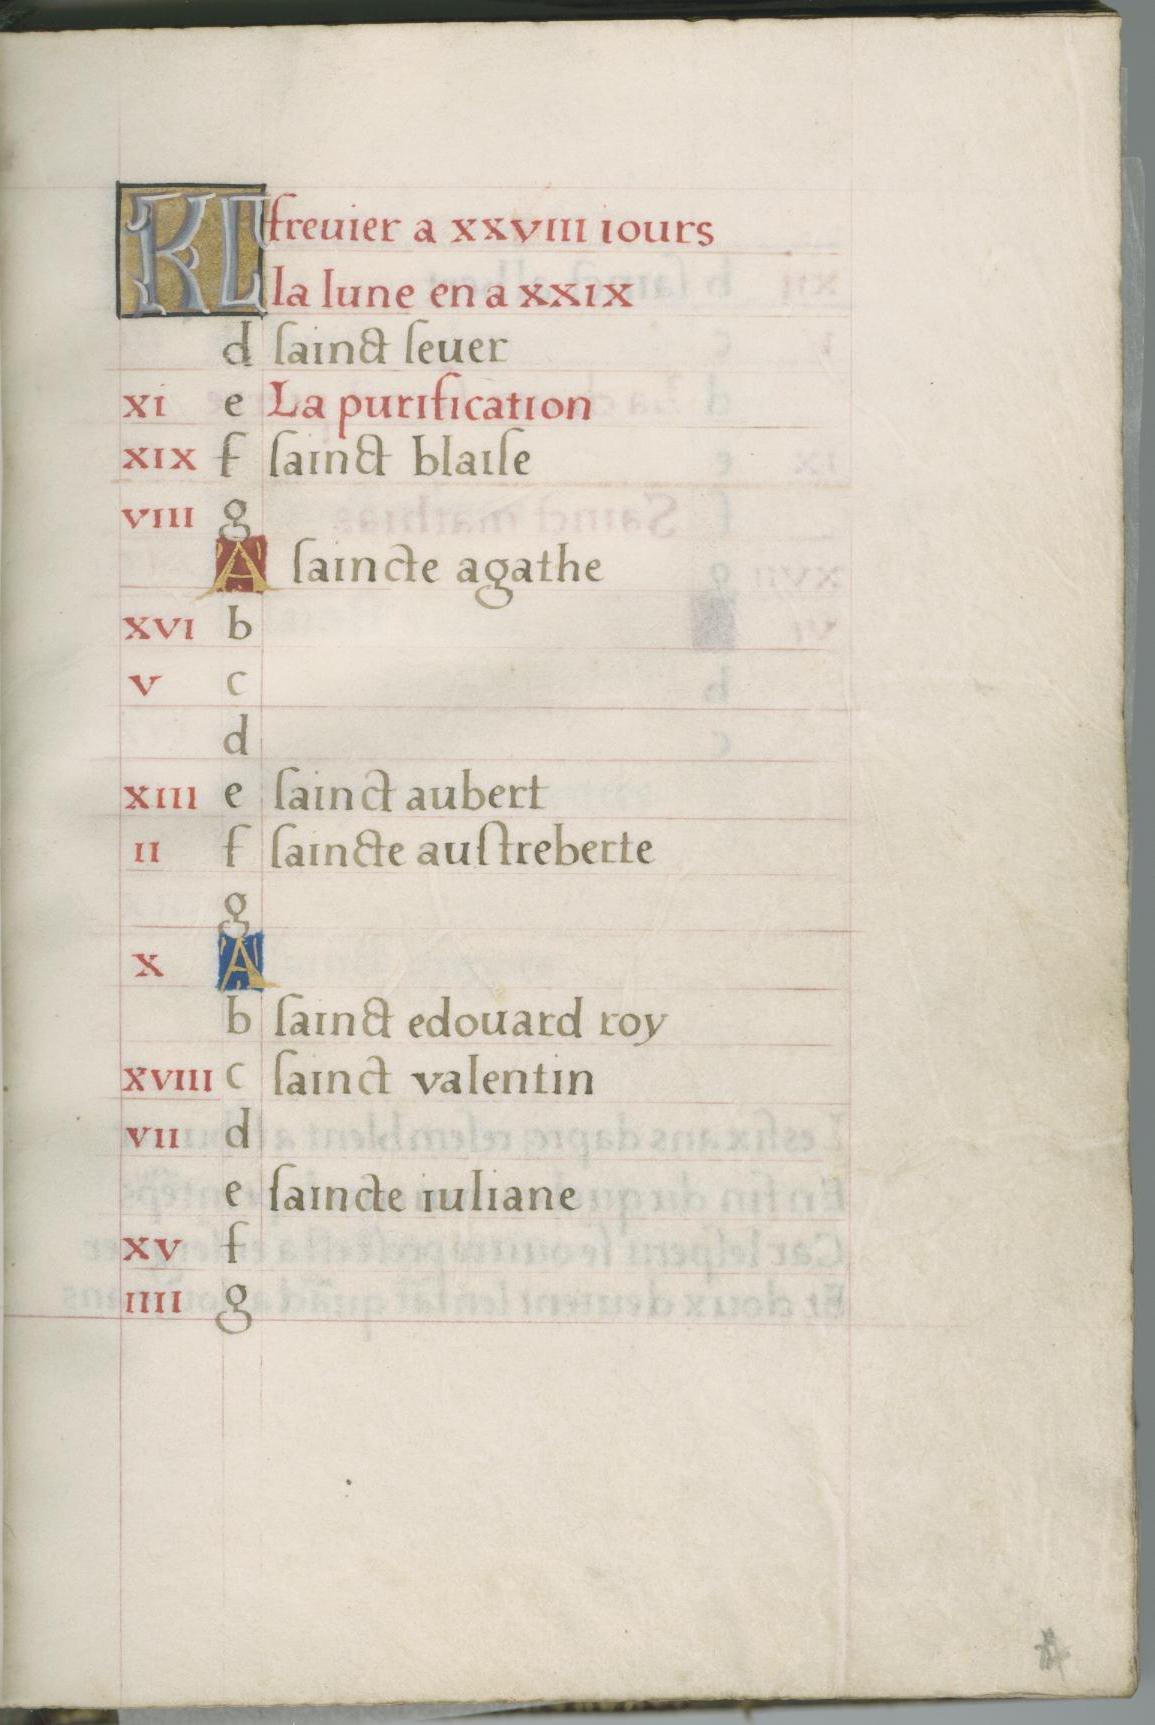 KL freuier a xxviii iours
la lune en a xxix
d sainct seuer
xi e La purification
xix f sainct blaise
viii g
A saincte agathe
xvi b
v c
d
xiii e sainct aubert
ii f saincte austreberte
g
x A
b sainct edouard roy
xviii c sainct valentin
vii d
e saincte iuliane
xv f
iiii g